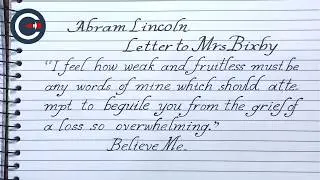 Abram Lincoln
Letter to Mrs. Bixby
"I feel how weak and fruitless must be
any words of mine which should atte
mpt to beguile you from the grief of
a loss so overwhelming."
Believe Me.